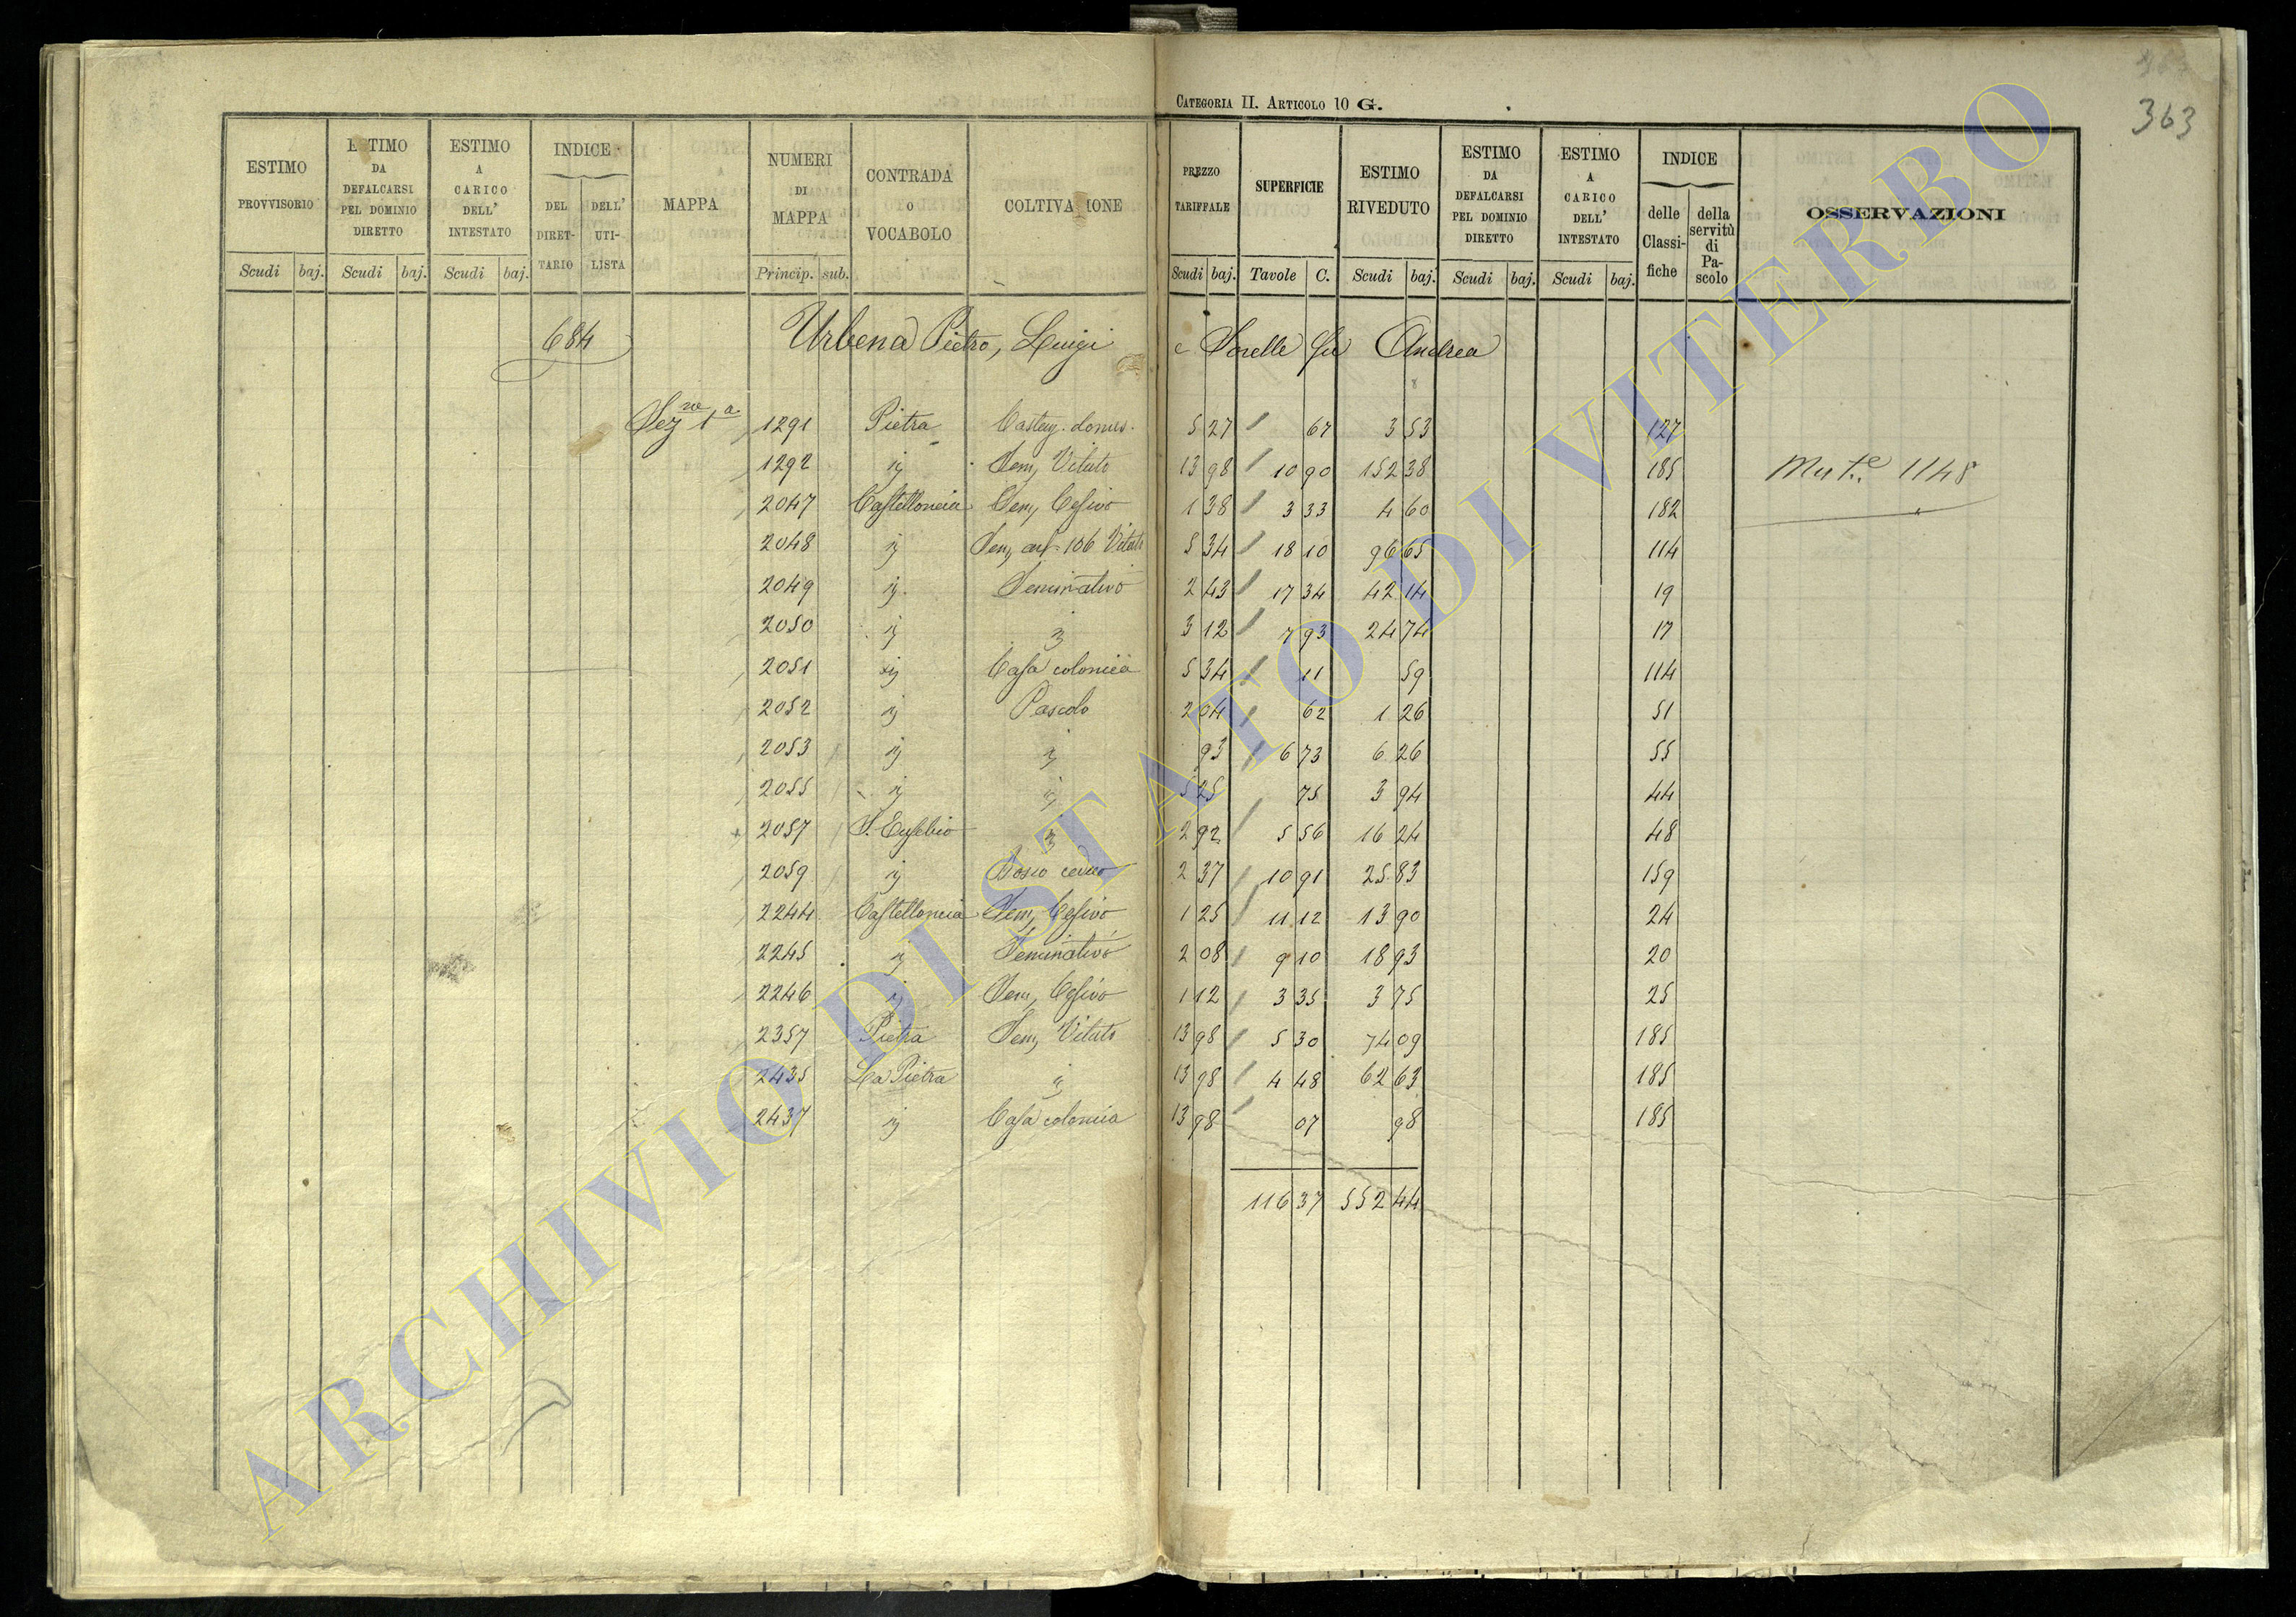 CATEGORIA II. ARTICOLO 10 G.
363
ESTIMO PROVVISORIO Scudi baj. | ESTIMO DA DEFALCARSI PEL DOMINIO DIRETTO Scudi baj. | ESTIMO A CARICO DELL' INTESTATO Scudi baj. | INDICE DEL DIRET-TARIO DELL' UTI-LISTA | MAPPA | NUMERI DI MAPPA Princip. sub. | CONTRADA O VOCABOLO | COLTIVAZIONE | PREZZO TARIFFALE Scudi baj. | SUPERFICIE Tavole C. | ESTIMO RIVEDUTO Scudi baj. | ESTIMO DA DEFALCARSI PEL DOMINIO DIRETTO Scudi baj. | ESTIMO A CARICO DELL' INTESTATO Scudi baj. | INDICE delle Classi-fiche della servitù di Pa-scolo | OSSERVAZIONI
684 Urbena Pietro, Luigi e Sorelle fu Andrea
Sez.ne 1a 1291 Pietra Castag. domes. 5 27 67 3 53 127
1292 ij Sem, Vitato 13 98 10 90 152 38 185 Mut.e 1148
2047 Castelloncia Sem, Cesivo 1 38 3 33 4 60 182
2048 ij Sem, 106 Vitato 5 34 18 10 96 65 114
2049 ij Seminativo 2 43 17 34 42 14 19
2050 ij ij 3 12 7 93 24 74 17
2051 ij Casa colonica 5 34 11 59 114
2052 ij Pascolo 2 04 62 1 26 51
2053 ij ij 93 6 73 6 26 55
2055 ij ij 5 25 75 3 94 44
2057 S. Eusebio ij 2 92 5 56 16 24 48
2059 ij Bosco ceduo 2 37 10 91 25 83 159
2244 Castelloncia Sem, Cesivo 1 25 11 12 13 90 24
2245 ij Seminativo 2 08 9 10 18 93 20
2246 ij Sem, Cesivo 1 12 3 35 3 75 25
2357 Pietra Sem, Vitato 13 98 5 30 74 09 185
2435 La Pietra ij 13 98 4 48 62 63 185
2437 ij Casa colonica 13 98 07 98 185
116 37 552 44
ARCHIVIO DI STATO DI VITERBO